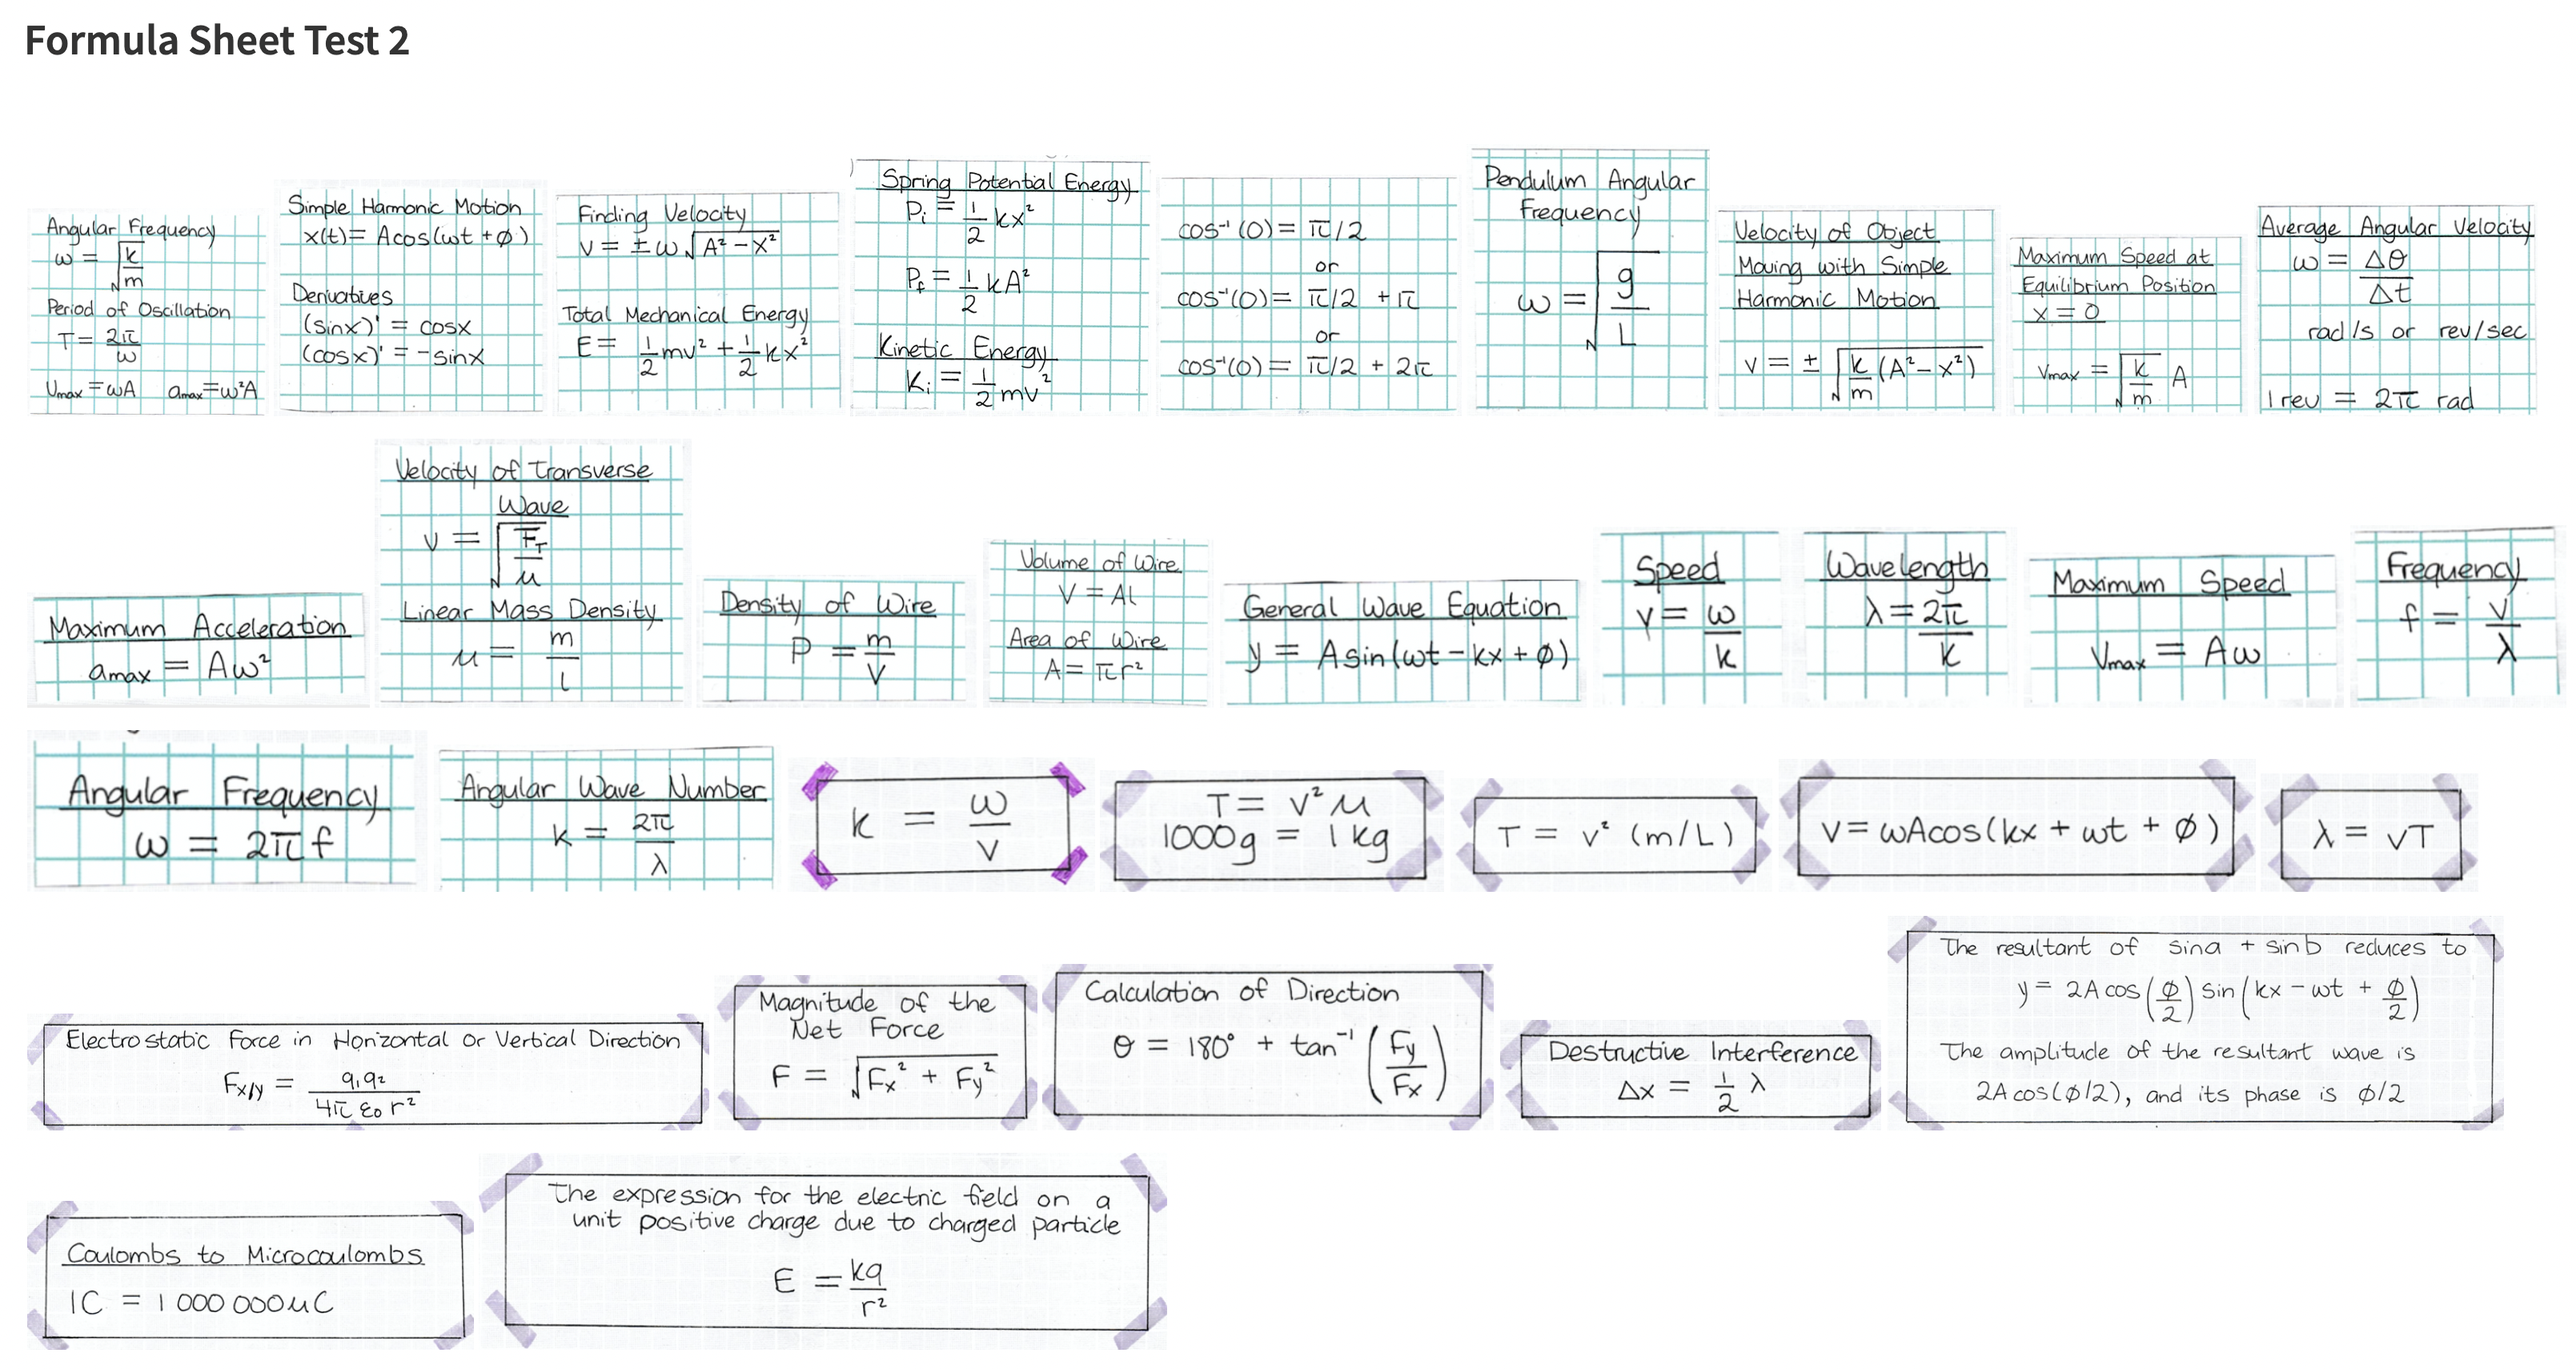 Formula Sheet Test 2
Angular Frequency
ω = √(k/m)
Period of Oscillation
T = 2π/ω
Vmax = ωA   amax = ω²A
Simple Harmonic Motion
x(t) = Acos(ωt + φ)
Derivatives
(sinx)' = cosx
(cosx)' = -sinx
Finding Velocity
V = ± ω√(A² - x²)
Total Mechanical Energy
E = 1/2 mv² + 1/2 kx²
Spring Potential Energy
Pi = 1/2 kx²
Pf = 1/2 kA²
Kinetic Energy
Ki = 1/2 mv²
cos⁻¹(0) = π/2
or
cos⁻¹(0) = π/2 + π
or
cos⁻¹(0) = π/2 + 2π
Pendulum Angular
Frequency
ω = √(g/L)
Velocity of Object
Moving with Simple
Harmonic Motion
v = ± √(k/m (A² - x²))
Maximum Speed at
Equilibrium Position
x = 0
Vmax = √(k/m) A
Average Angular Velocity
ω = Δθ/Δt
rad/s or rev/sec
1 rev = 2π rad
Maximum Acceleration
amax = Aω²
Velocity of Transverse
Wave
v = √(FT/μ)
Linear Mass Density
μ = m/l
Density of Wire
P = m/V
Volume of Wire
V = Al
Area of Wire
A = πr²
General Wave Equation
y = Asin(ωt - kx + φ)
Speed
v = ω/k
Wavelength
λ = 2π/k
Maximum Speed
Vmax = Aω
Frequency
f = v/λ
Angular Frequency
ω = 2πf
Angular Wave Number
k = 2π/λ
k = ω/v
T = v²μ
1000g = 1 kg
T = v² (m/L)
V = ωAcos(kx + ωt + φ)
λ = vT
Electrostatic Force in Horizontal or Vertical Direction
Fx/y = q₁q₂/4πε₀r²
Magnitude of the
Net Force
F = √(Fx² + Fy²)
Calculation of Direction
θ = 180° + tan⁻¹(Fy/Fx)
Destructive Interference
Δx = 1/2 λ
The resultant of sina + sinb reduces to
y = 2A cos(φ/2) sin(kx - ωt + φ/2)
The amplitude of the resultant wave is
2A cos(φ/2), and its phase is φ/2
Coulombs to Microcoulombs
1C = 1 000 000μC
The expression for the electric field on a
unit positive charge due to charged particle
E = kq/r²